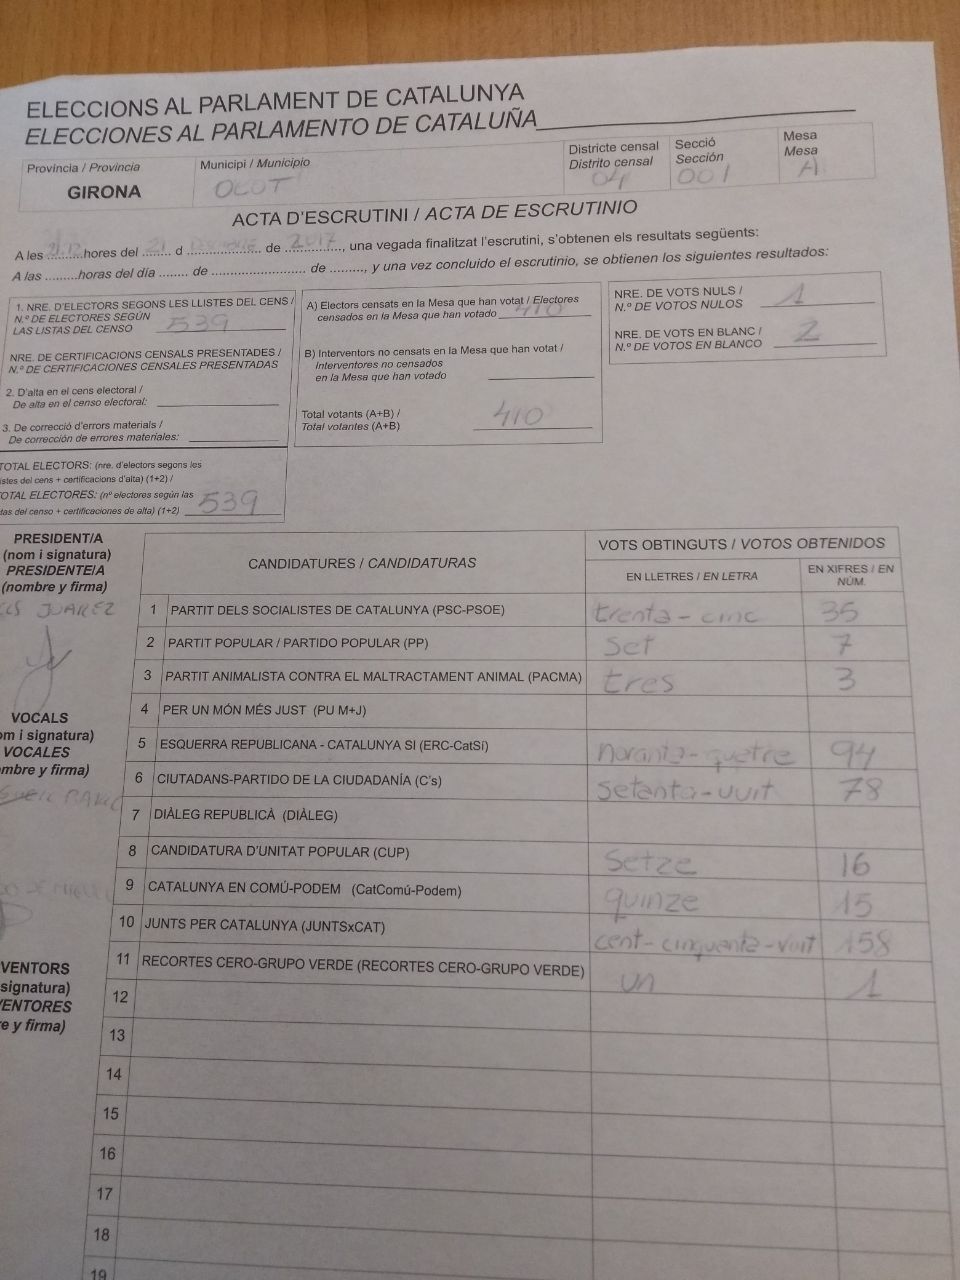 ELECCIONS AL PARLAMENT DE CATALUNYA
ELECCIONES AL PARLAMENTO DE CATALUÑA
Provincia / Provincia
GIRONA
Municipi / Municipio
OLOT
Districte censal
Distrito censal
04
Secció
Sección
001
Mesa
Mesa
A
ACTA D'ESCRUTINI / ACTA DE ESCRUTINIO
A les ........ hores del 21 d ........ de 2017, una vegada finalitzat l'escrutini, s'obtenen els resultats següents:
A las .........horas del día ........ de .......................... de ........., y una vez concluido el escrutinio, se obtienen los siguientes resultados:
1. NRE. D'ELECTORS SEGONS LES LLISTES DEL CENS /
N.º DE ELECTORES SEGÚN
LAS LISTAS DEL CENSO 539
NRE. DE CERTIFICACIONS CENSALS PRESENTADES /
N.º DE CERTIFICACIONES CENSALES PRESENTADAS
2. D'alta en el cens electoral /
De alta en el censo electoral:
3. De correcció d'errors materials /
De corrección de errores materiales:
TOTAL ELECTORS: (nre. d'electors segons les
istes del cens + certificacions d'alta) (1+2) /
TOTAL ELECTORES: (nº electores según las
tas del censo + certificaciones de alta) (1+2) 539
A) Electors censats en la Mesa que han votat / Electores
censados en la Mesa que han votado 410
B) Interventors no censats en la Mesa que han votat /
Interventores no censados
en la Mesa que han votado
Total votants (A+B) /
Total votantes (A+B) 410
NRE. DE VOTS NULS /
N.º DE VOTOS NULOS 1
NRE. DE VOTS EN BLANC /
N.º DE VOTOS EN BLANCO 2
PRESIDENT/A
(nom i signatura)
PRESIDENTE/A
(nombre y firma)
JUAREZ
VOCALS
om i signatura)
VOCALES
mbre y firma)
VENTORS
signatura)
VENTORES
e y firma)
CANDIDATURES / CANDIDATURAS
VOTS OBTINGUTS / VOTOS OBTENIDOS
EN LLETRES / EN LETRA
EN XIFRES / EN
NÚM.
1 PARTIT DELS SOCIALISTES DE CATALUNYA (PSC-PSOE) trenta-cinc 35
2 PARTIT POPULAR / PARTIDO POPULAR (PP) set 7
3 PARTIT ANIMALISTA CONTRA EL MALTRACTAMENT ANIMAL (PACMA) tres 3
4 PER UN MÓN MÉS JUST (PU M+J)
5 ESQUERRA REPUBLICANA - CATALUNYA SI (ERC-CatSí) noranta-quetre 94
6 CIUTADANS-PARTIDO DE LA CIUDADANÍA (C's) setanta-vuit 78
7 DIÀLEG REPUBLICÀ (DIÀLEG)
8 CANDIDATURA D'UNITAT POPULAR (CUP) setze 16
9 CATALUNYA EN COMÚ-PODEM (CatComú-Podem) quinze 15
10 JUNTS PER CATALUNYA (JUNTSxCAT) cent-cinquanta-vuit 158
11 RECORTES CERO-GRUPO VERDE (RECORTES CERO-GRUPO VERDE) un 1
12
13
14
15
16
17
18
19